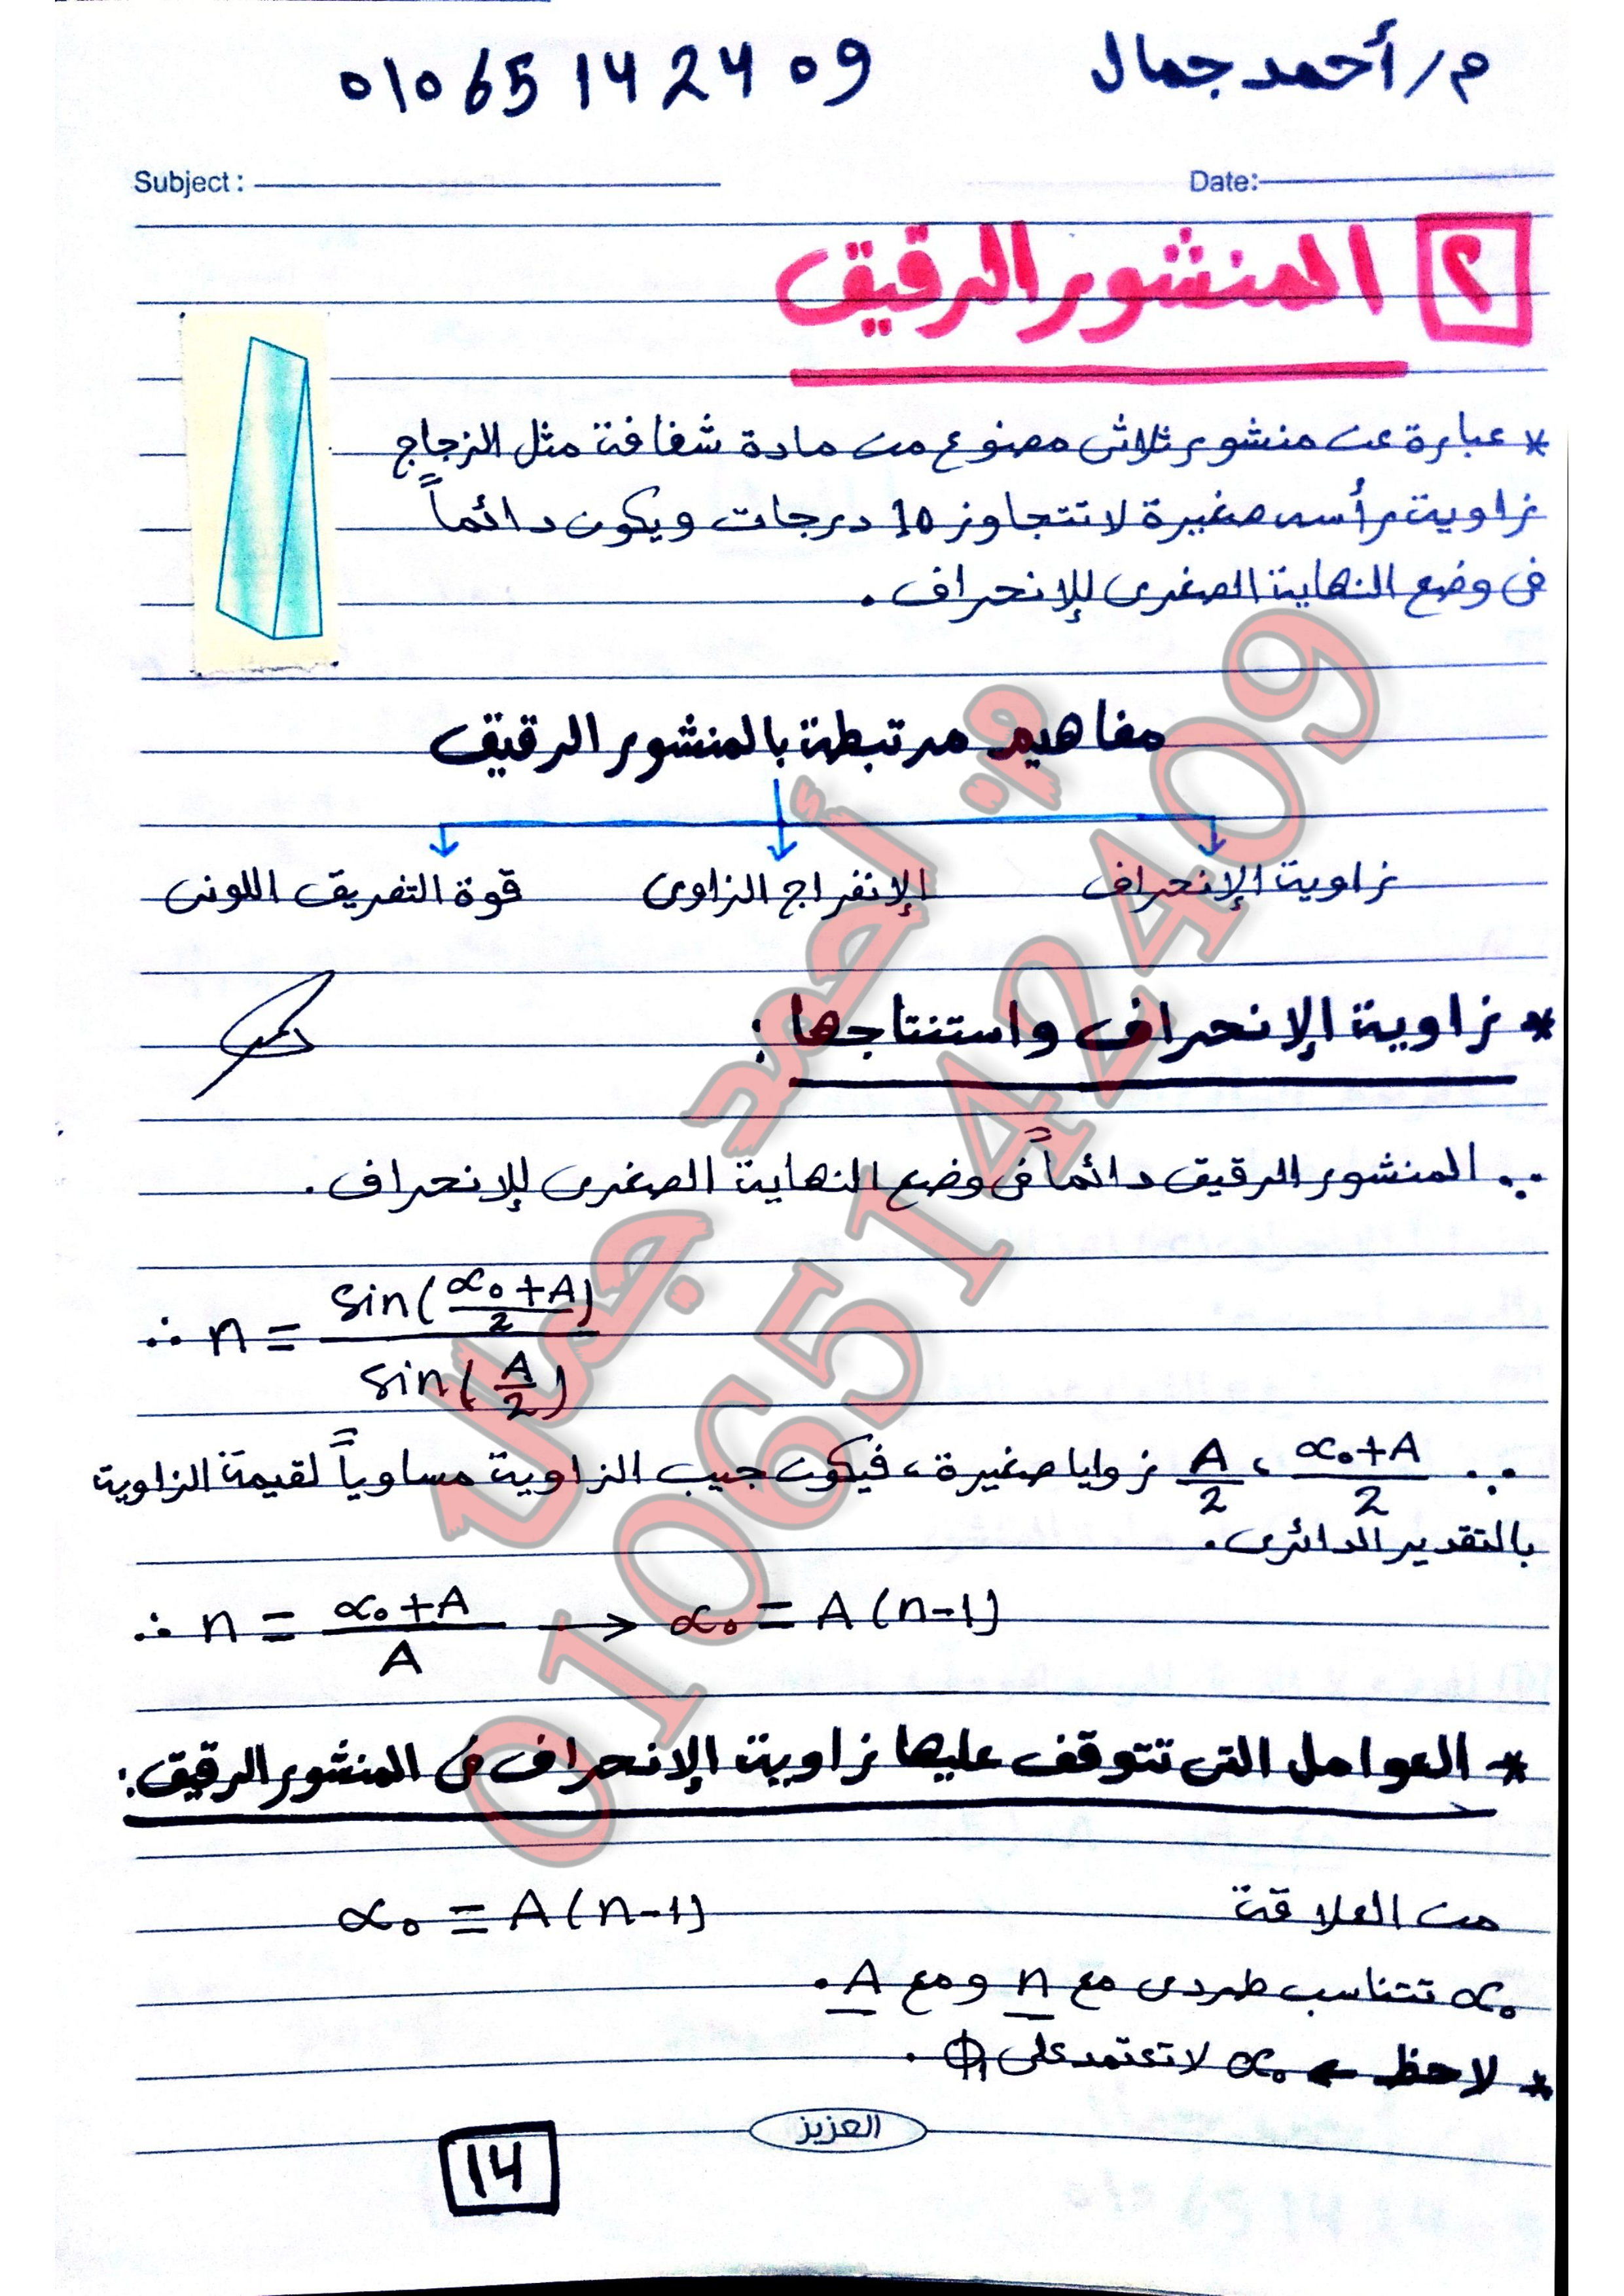 م/أحمد جمال 01065142409
Subject: Date:
٢ المنشور الرقيق
* عبارة عن منشور ثلاثى مصنوع من مادة شفافة مثل الزجاج
زاوية رأسه صغيرة لا تتجاوز 10 درجات ويكون دائماً
فى وضع النهاية الصغرى للإنحراف.
مفاهيم مرتبطة بالمنشور الرقيق
زاوية الإنحراف الإنفراج الزاوى قوة التفريق اللونى
* زاوية الإنحراف واستنتاجها:
∵ المنشور الرقيق دائماً فى وضع النهاية الصغرى للإنحراف.
∴ n = sin((α₀+A)/2) / sin(A/2)
∵ (α₀+A)/2 ، A/2 زوايا صغيرة، فيكون جيب الزاوية مساوياً لقيمة الزاوية
بالتقدير الدائرى.
∴ n = (α₀+A)/A → α₀ = A(n-1)
* العوامل التى تتوقف عليها زاوية الإنحراف فى المنشور الرقيق:
من العلاقة α₀ = A(n-1)
α₀ تتناسب طردى مع n ومع A.
* لاحظ ← α₀ لا تعتمد على ϕ₁.
العزيز
14
م. أحمد جمال
01065142409